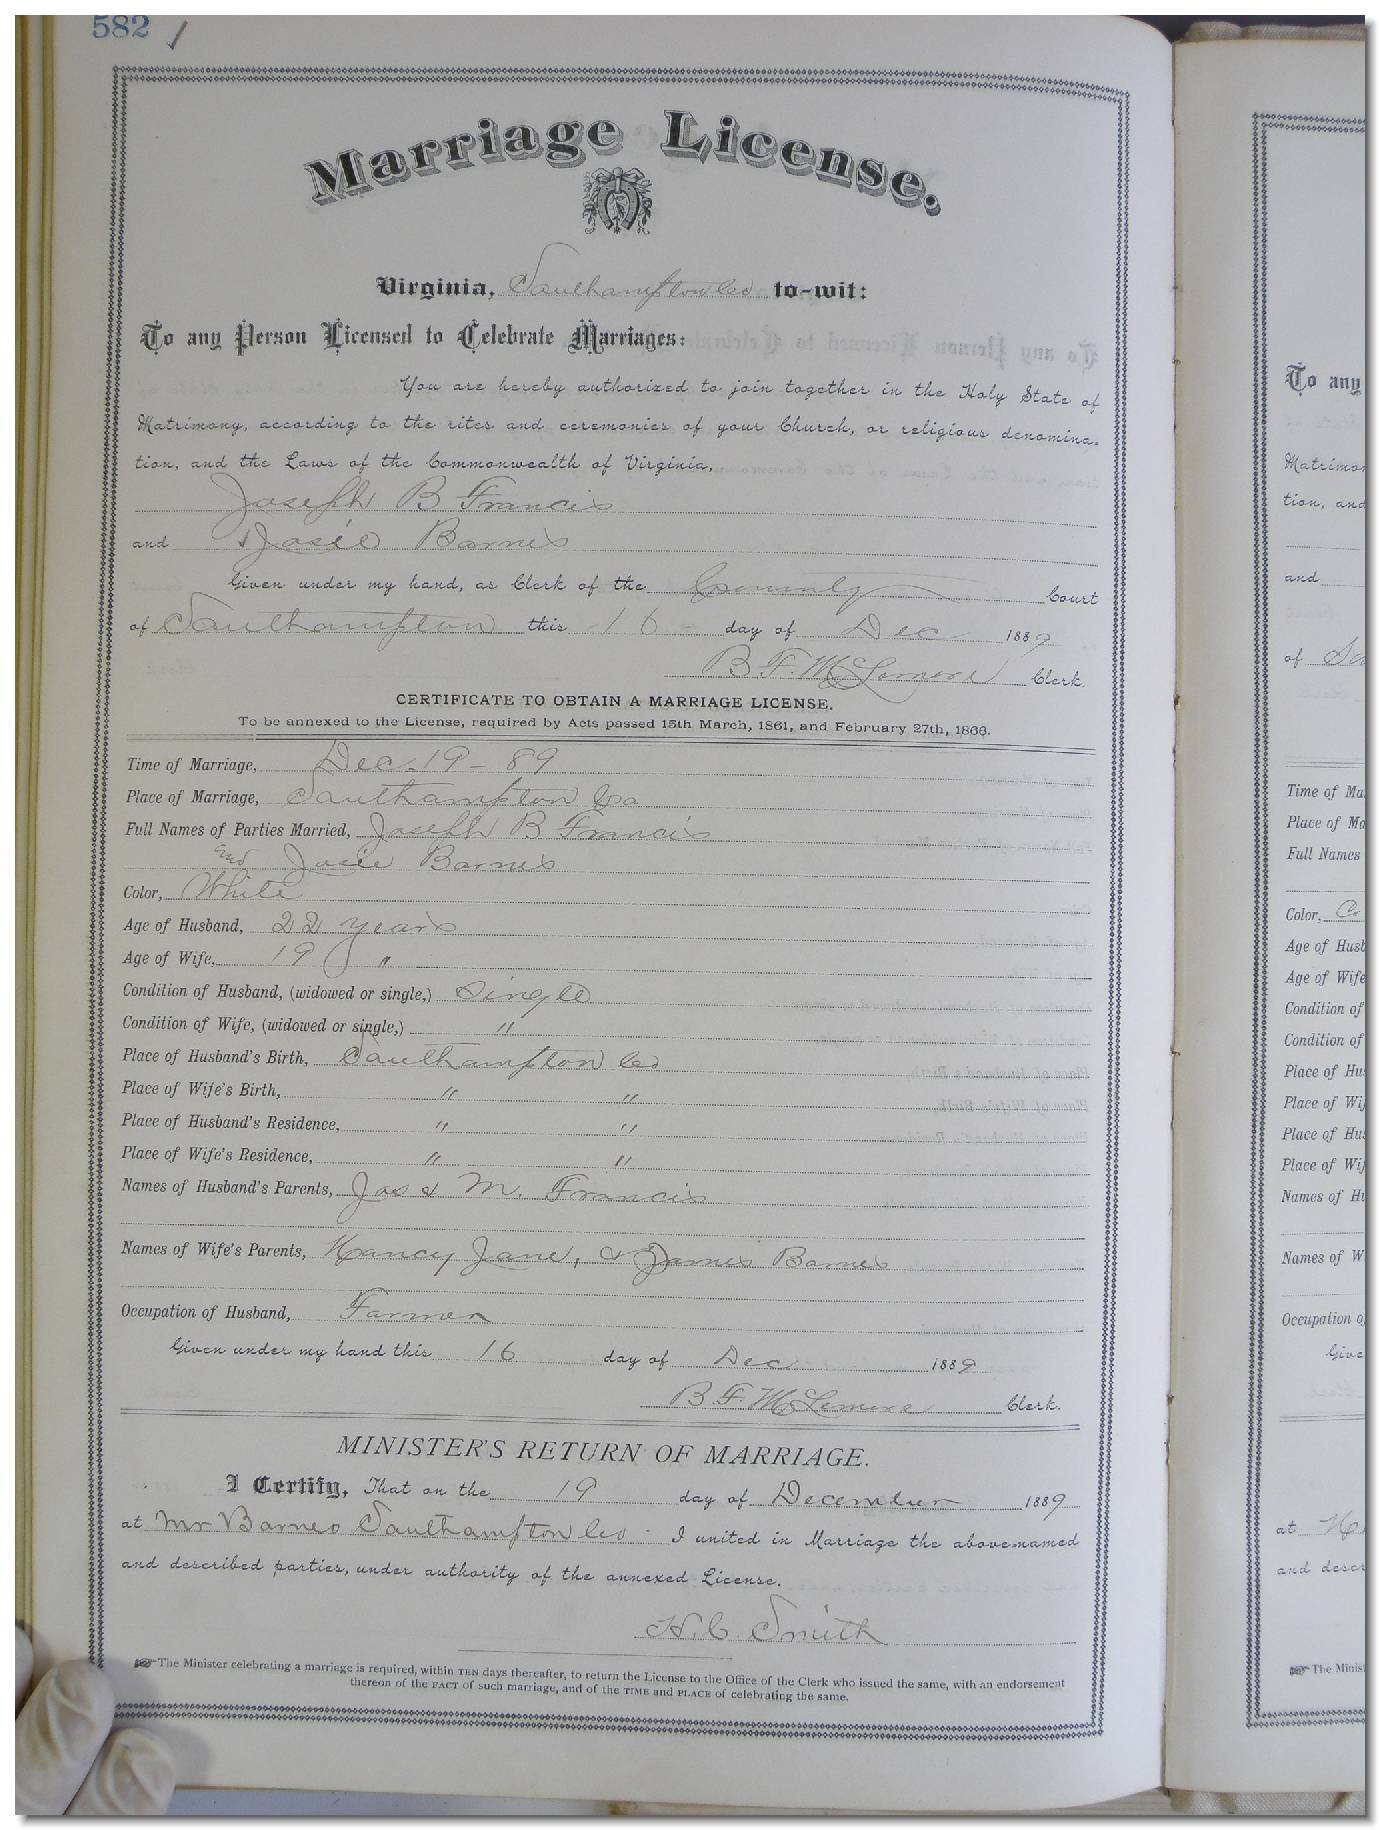 582
Marriage License.
Virginia, Southampton Co to-wit:
To any Person Licensed to Celebrate Marriages:
You are hereby authorized to join together in the Holy State of
Matrimony, according to the rites and ceremonies of your Church, or religious denomina-
tion, and the Laws of the Commonwealth of Virginia,
Joseph B Francis
and Josie Barnes
Given under my hand, as Clerk of the County Court
of Southampton this 16 day of Dec 1889
B. F. McLemore Clerk.
CERTIFICATE TO OBTAIN A MARRIAGE LICENSE.
To be annexed to the License, required by Acts passed 15th March, 1861, and February 27th, 1866.
Time of Marriage, Dec. 19 - 89
Place of Marriage, Southampton Co
Full Names of Parties Married, Joseph B Francis
and Josie Barnes
Color, White
Age of Husband, 22 years
Age of Wife, 19 "
Condition of Husband, (widowed or single,) Single
Condition of Wife, (widowed or single,) "
Place of Husband's Birth, Southampton Co
Place of Wife's Birth, " "
Place of Husband's Residence, " "
Place of Wife's Residence, " "
Names of Husband's Parents, Jos & M. Francis
Names of Wife's Parents, Nancy Jane, & James Barnes
Occupation of Husband, Farmer
Given under my hand this 16 day of Dec 1889
B. F. McLemore Clerk.
MINISTER'S RETURN OF MARRIAGE.
I Certify, That on the 19 day of December 1889
at Mr Barnes Southampton Co I united in Marriage the above-named
and described parties, under authority of the annexed License.
H. C. Smith
The Minister celebrating a marriage is required, within TEN days thereafter, to return the License to the Office of the Clerk who issued the same, with an endorsement
thereon of the FACT of such marriage, and of the TIME and PLACE of celebrating the same.
To any
Matrimo
tion, and
and
of So
Time of Ma
Place of Ma
Full Names
Color, Co
Age of Husb
Age of Wife
Condition of
Condition of
Place of Hu
Place of Wi
Place of Hu
Place of Wi
Names of Hu
Names of W
Occupation o
Give
at
and descr
The Minis